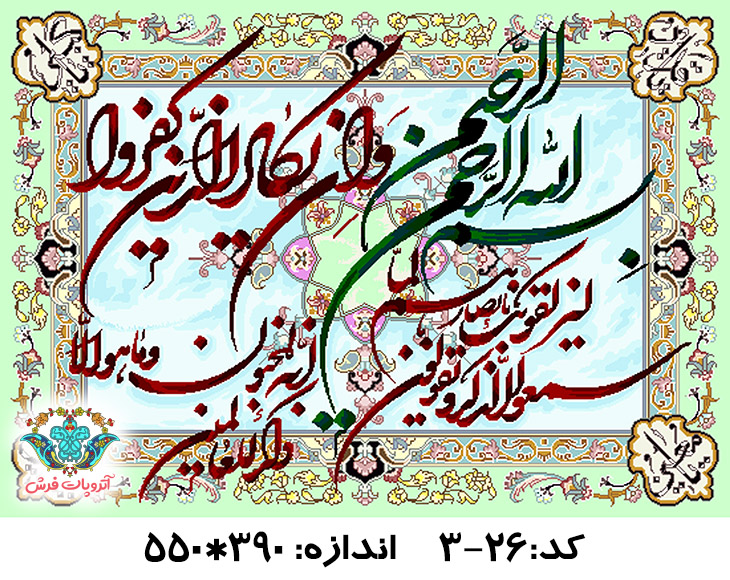 بسم الله الرحمن الرحیم
وان یکاد الذین کفروا
لیزلقونک بابصارهم لما
سمعوا الذکر و یقولون
انه لمجنون وما هو الا
ذکر للعالمین
آتروپات فرش
کد:۲۶-۳ اندازه: ۳۹۰*۵۵۰